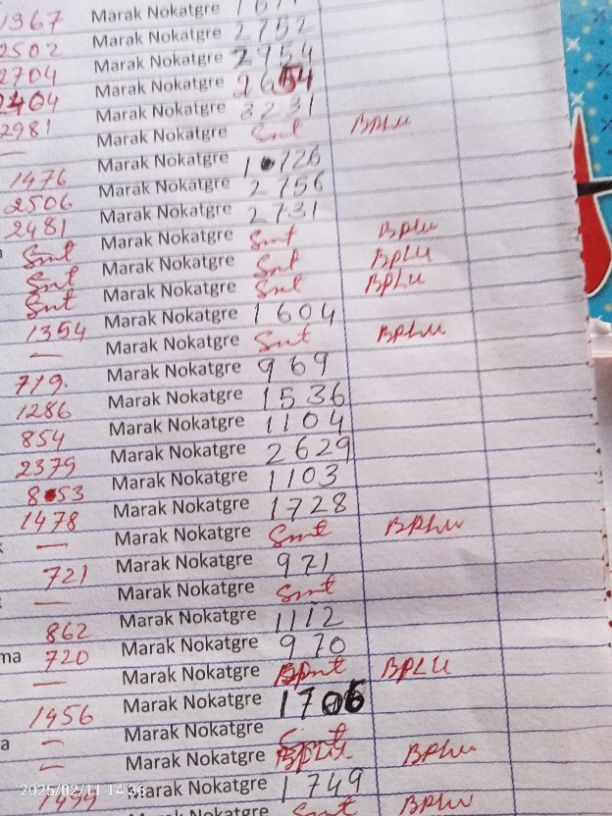 1367 Marak Nokatgre
2502 Marak Nokatgre 2752
2704 Marak Nokatgre 2954
2404 Marak Nokatgre 2654
2981 Marak Nokatgre 3231
— Marak Nokatgre Smt BPLu
1476 Marak Nokatgre 1726
2506 Marak Nokatgre 2756
2481 Marak Nokatgre 2731
Smt Marak Nokatgre Smt BPLu
Smt Marak Nokatgre Smt BPLu
Smt Marak Nokatgre Smt BPLu
1354 Marak Nokatgre 1604
— Marak Nokatgre Smt BPLu
719. Marak Nokatgre 969
1286 Marak Nokatgre 1536
854 Marak Nokatgre 1104
2379 Marak Nokatgre 2629
853 Marak Nokatgre 1103
1478 Marak Nokatgre 1728
— Marak Nokatgre Smt BPLu
721 Marak Nokatgre 971
— Marak Nokatgre Smt
862 Marak Nokatgre 1112
ma 720 Marak Nokatgre 970
— Marak Nokatgre BPLU
1456 Marak Nokatgre 1706
a — Marak Nokatgre
— Marak Nokatgre BPLu
Marak Nokatgre 1749
Marak Nokatgre Smt BPLu
2025/02/11 14:36